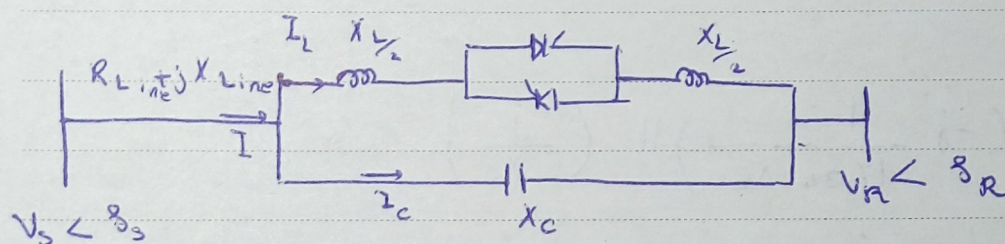 I_L X_L/2 X_L/2
R_Line + j X_Line
I
I_C X_C
V_S < δ_S V_R < δ_R